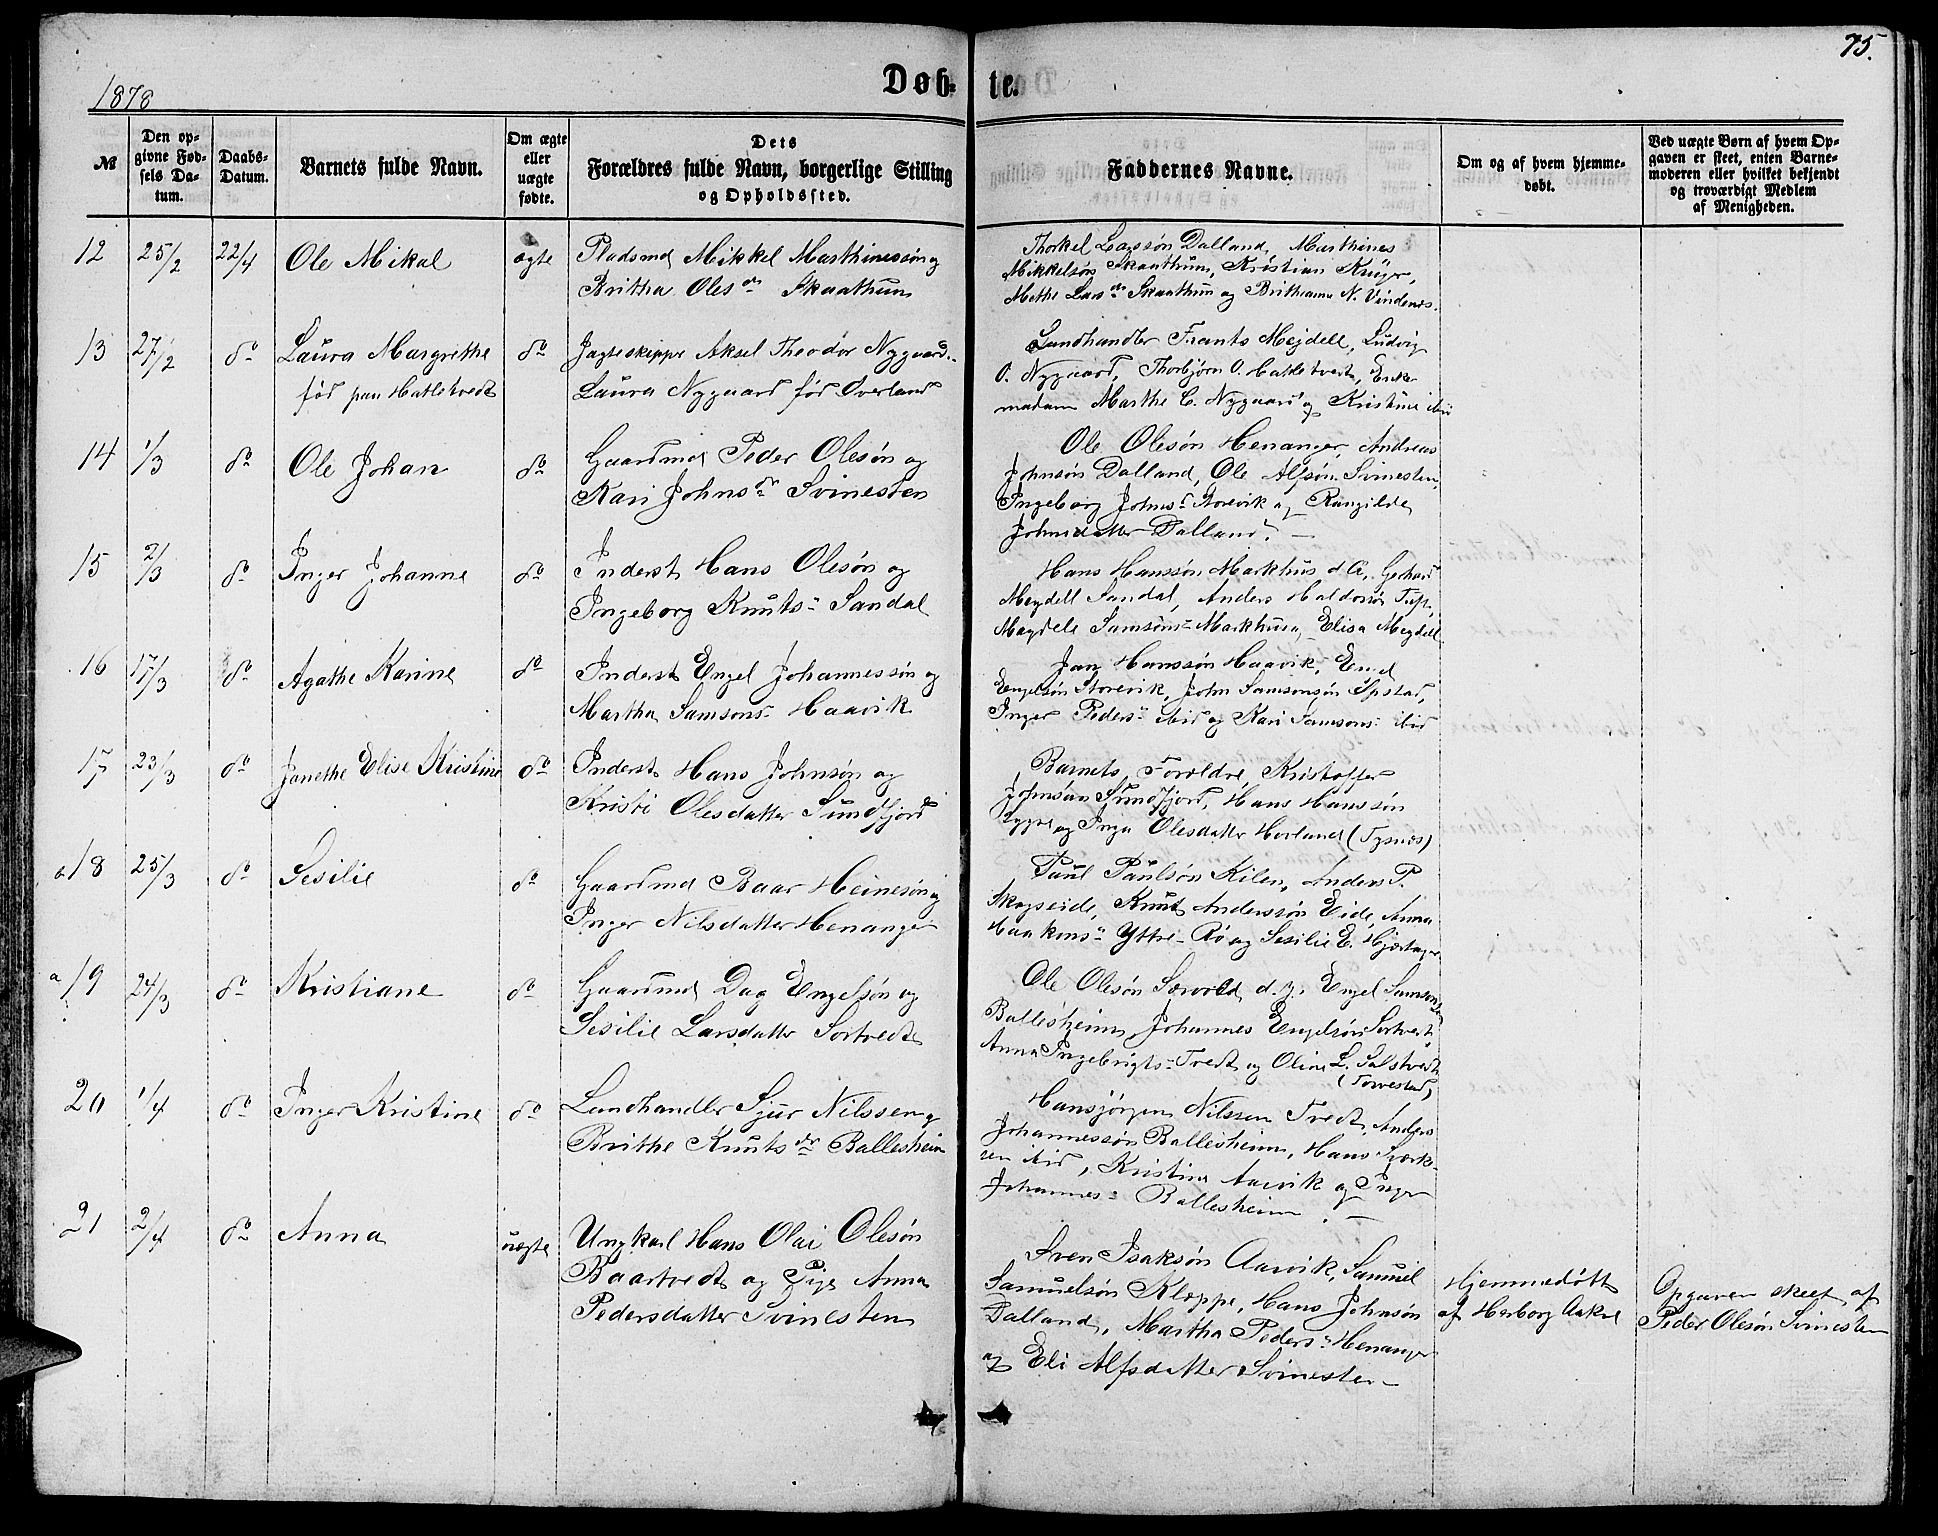 75.
1878
Døb-
te.
№
Den op-
givne Fød-
sels Da-
tum.
Daabs-
Datum.
Barnets fulde Navn.
Om ægte
eller
uægte
fødte.
Dets
Forældres fulde Navn, borgerlige Stilling
og Opholdssted.
Faddernes Navne.
Om og af hvem hjemme-
døbt.
Ved uægte Børn af hvem Op-
gaven er skeet, enten Barne-
moderen eller hvilket bekjendt
og troværdigt Medlem
af Menigheden.
12 25/2 22/4 Ole Mikal ægte Pladsmd Mikkel Marthinessøn og
Britha Olesdr Skaathun
Thorkel Larssøn Dalland, Marthines
Mikkelsøn Skaathun, Kristian Krüger,
Methe Larsdr Skaathun og Brithanna N. Vindenes.
13 27/2 do Laura Margrethe do Jagteskippr Aksel Theodor Nygaard..
fød paa Hatletvedt Laura Nygaard fød Øverland
Landhandler Frants Mejdell, Ludvig
O. Nygaard, Thorbjørn O. Hatletvedt, Enke-
madam Marthe C. Nygaard og Kristine ibid
14 1/3 do Ole Johan do Gaardmd Peder Olesøn og
Kari Johnsdr Svinesten
Ole Olesøn Henanger, Andreas
Johnsøn Dalland, Ole Alfsøn Svinesten,
Ingeborg Johns- Storevik og Rangilde
Johnsdatter Dalland. —
15 2/3 do Inger Johanne do Inderst Hans Olesøn og
Ingeborg Knuts- Sandal
Hans Hanssøn Markhus d. Æ, Gerhard
Meydell Sandal, Anders Haldorsøn
Magdele Samsøns- Markhus, Elisa Meydell
16 17/3 do Agathe Karine do Inderst Engel Johannessøn og
Martha Samsons- Haavik
Jan Hanssøn Haavik,
Engelsøn Storevik, John Samsonsøn
Inger Peders- ibid og Kari Samsons- ibid
17 23/3 do Janethe Elise Kristine do Inderst Hans Johnsøn og
Kristi Olesdatter Sundfjord
Barnets Forældre, Kristoffer
Johnsøn Sundfjord, Hans Hanssøn
og Inga Olesdatter Horland (Tysnes)
18 25/3 do Sesilie do Gaardmd Baar Heinesøn og
Inger Nilsdatter Henanger
Paul Paulsøn Kilen, Anders P.
Skogseide, Knut Anderssøn Eide, Anna
Haakons- Yttre-Rø og Sesilie E. Hjortager
a 19 24/3 do Kristiane do Gaardmd Dag Engelsøn og
Sesilie Larsdatter Sortvedt
Ole Olesøn Sævold d. y. Engel Samsonsøn
Ballesheim, Johannes Engelsøn Sortvedt,
Anna Ingebrigts- Tvedt og Oline L.
20 1/4 do Inger Kristine do Landhandler Sjur Nilssen og
Brithe Knutsdr Ballesheim
Hansjørgen Nilssen Tvedt, Anders
Johannessøn Ballesheim, Hans
ibid, Kristine Aarvik og Inger
Johannes- Ballesheim. —
21 2/4 do Anna uægte Ungkarl Hans Olai Olesøn
Baartvedt og Pige Anna
Pedersdatter Svinesten
Sven Isaksøn Aarvik, Samuel
Samuelsøn Kleppe, Hans Johnsøn
Dalland, Martha Peders- Henanger
og Eli Alfsdatter Svinesten
Hjemmedøbt
af Herborg Aakre
Opgaven skeet af
Peder Olesøn Svinesten